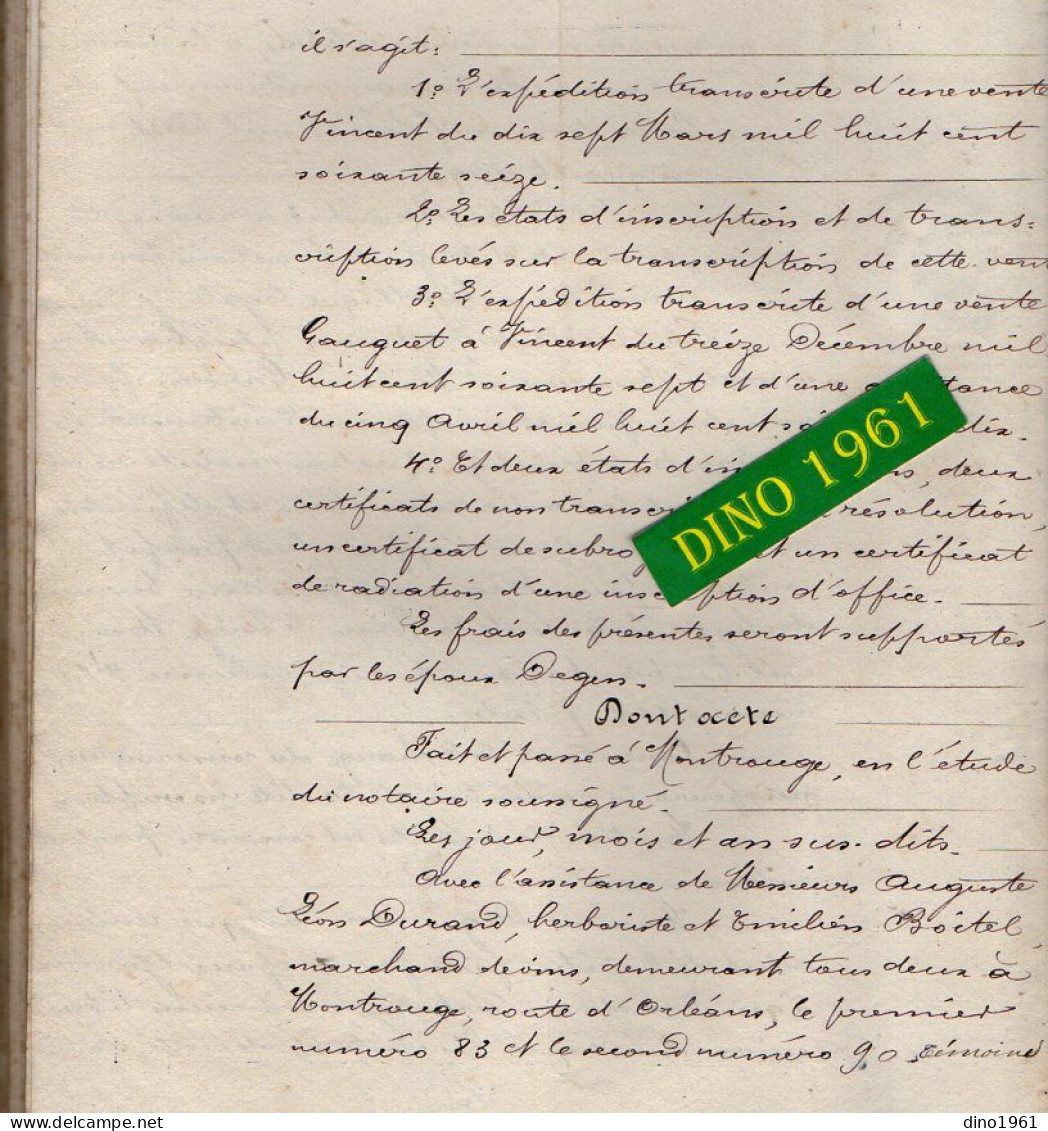 il s'agit:
1º L'expédition transcrite d'une vente
Vincent du dix sept Mars mil huit cent
soixante seize.
2º Les états d'inscription et de trans=
cription levés sur la transcription de cette vent
3º L'expédition transcrite d'une vente
Gauguet à Vincent du treize Décembre mil
huit cent soixante sept et d'une tance
du cinq Avril mil huit cent dix.
4º Et deux états d'in s, deux
certificats de non transcri résolution,
un certificat de subro et un certificat
de radiation d'une inscription d'office.
Les frais des présentes seront supportés
par les époux Degen.
Dont acte
Fait et passé à Montrouge, en l'étude
du notaire soussigné.
Les jour, mois et an sus-dits.
Avec l'assistance de Messieurs Auguste
Léon Durand, herboriste et Emilien Boitel,
marchand de vins, demeurant tous deux à
Montrouge, route d'Orléans, le premier
numéro 83 et le second numéro 90, témoins
DINO 1961
dino1961